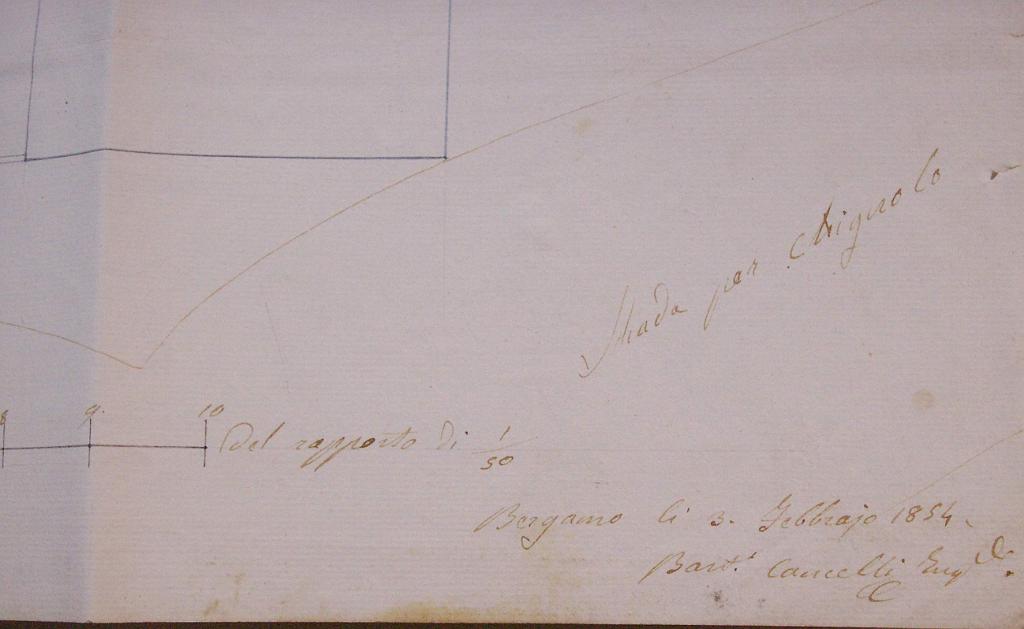 Strada per Chignolo
8 9. 10 Del rapporto di 1/50
Bergamo li 3. Febbrajo 1854.
Bart.